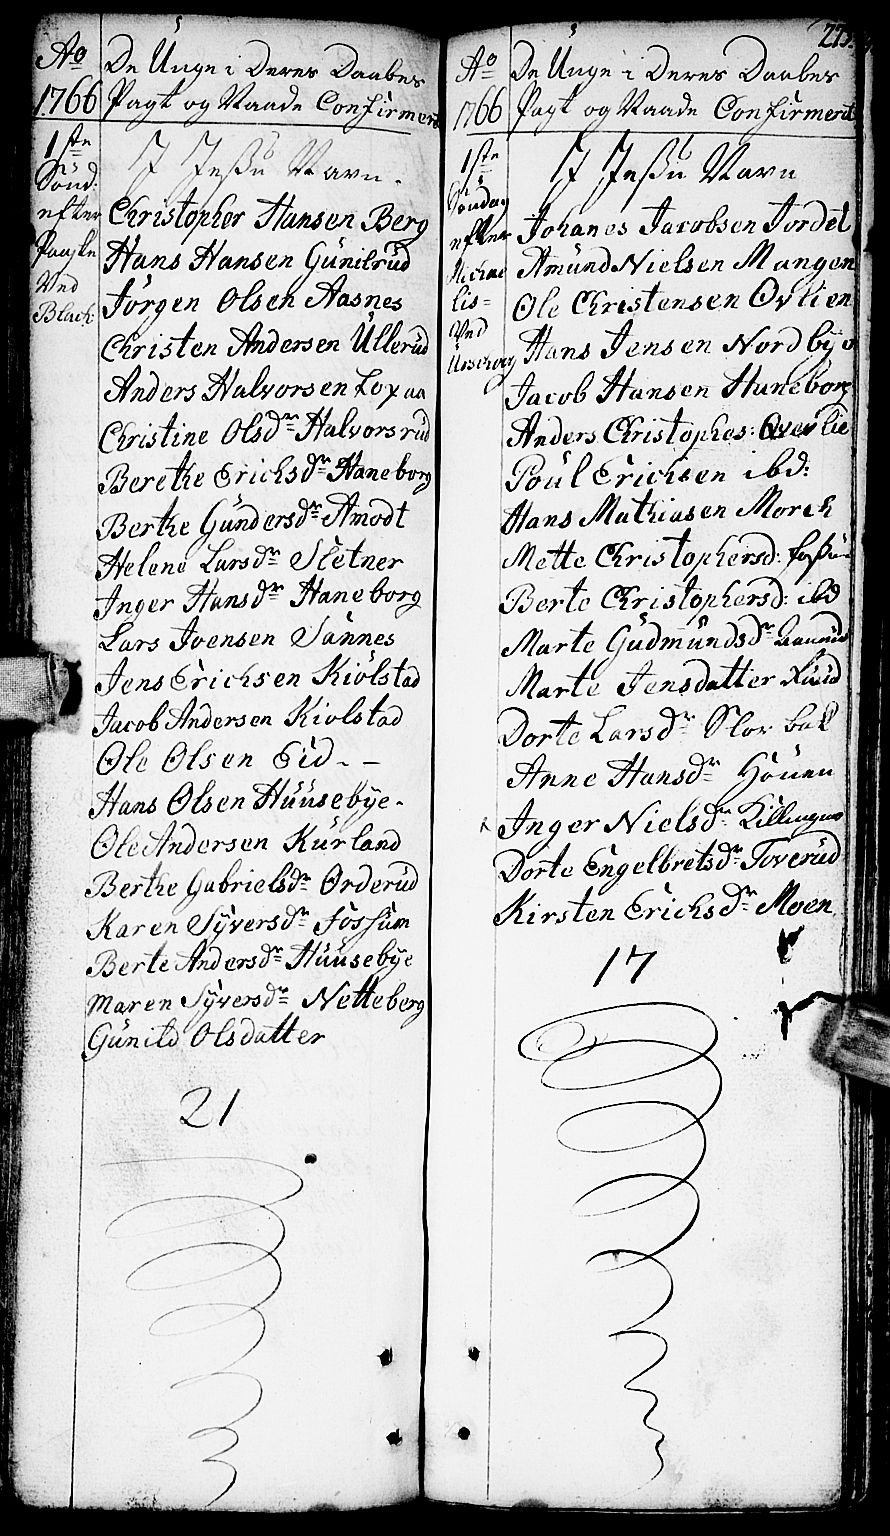 Ao
1766
De Unge i Deres Daabes
Pagt og Naade Confirmert
1ste
Sönd:
efter
Paaske
Ved
Blach:
I Jessu Navn.
Christopher Hansen Berg
Hans Hansen Günilrüd
Jörgen Olsen Aasnes
Christen Andersen Üllerüd
Anders Halvorsen Loxaa
Christine Olsdr Halvorsrüd
Berethe Erichsdr Haneborg
Berthe Gündersdr Amodt
Helene Larsdr Sletner
Inger Hansdr Haneborg
Lars Joensen Sannes
Jens Erichsen Kiölstad
Jacob Andersen Kiolstad
Ole Olsen Eid - -
Hans Olsen Hüüsebye.
Ole Andersen Kürland
Berthe Gabrielsdr Orderüd
Karen Syversdr Fossum
Berte Andersdr Hüüsebye
Maren Syversdr Netteberg
Günild Olsdatter
21
273.
Ao
1766
De Unge i Deres Daabes
Pagt og Naade Confirmert
1ste
Söndag
efter
Michae
lis=
Ved
Urschoug
I Jessu Navn
Johanes Jacobsen Jordet
Amünd Nielsen Mangen
Ole Christensen Ovlien
Hans Jensen Nordbye
Jacob Hansen Haneborg
Anders Christophes: Overlie
Poül Erichsen ibd:
Hans Mathiasen Morck
Mette Christophersd: Fossum
Berte Christophersd: ibd
Marte Güdmündsdr
Marte Jensdatter
Dorte Larsdr Slorbak
Anne Hansdr Höuen
Inger Nielsdr Killingmo
Dorte Engelbretsdr Toverüd
Kirsten Erichsdr Moen
17